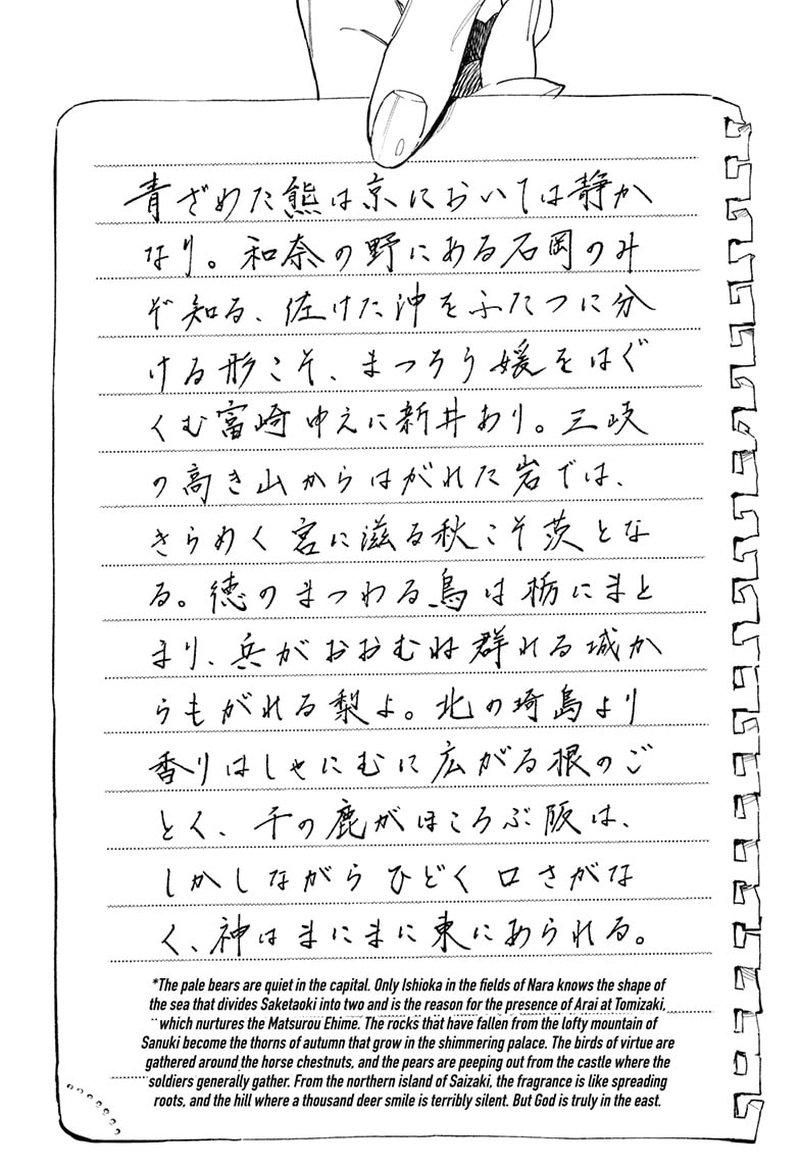 青ざめた熊は京においては静か
なり。和奈の野にある石岡のみ
ぞ知る、佐けた沖をふたつに分
ける形こそ、まつろう媛をはぐ
くむ富崎ゆえに新井あり。三岐
の高き山からはがれた岩では、
きらめく宮に滋る秋こそ茨とな
る。徳のまつわる鳥は栃にまと
まり、兵がおおむね群れる城か
らもがれる梨よ。北の埼島より
香りはしゃにむに広がる根のご
とく、千の鹿がほころぶ阪は、
しかしながらひどく口さがな
く、神はまにまに東にあられる。
*The pale bears are quiet in the capital. Only Ishioka in the fields of Nara knows the shape of
the sea that divides Saketaoki into two and is the reason for the presence of Arai at Tomizaki,
which nurtures the Matsurou Ehime. The rocks that have fallen from the lofty mountain of
Sanuki become the thorns of autumn that grow in the shimmering palace. The birds of virtue are
gathered around the horse chestnuts, and the pears are peeping out from the castle where the
soldiers generally gather. From the northern island of Saizaki, the fragrance is like spreading
roots, and the hill where a thousand deer smile is terribly silent. But God is truly in the east.